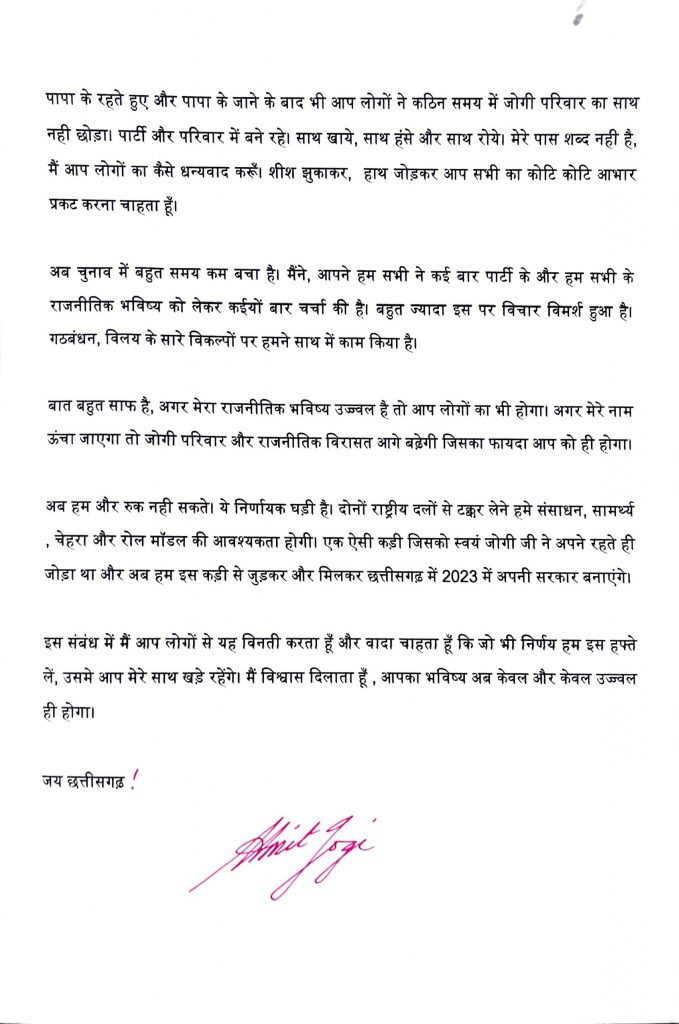 पापा के रहते हुए और पापा के जाने के बाद भी आप लोगों ने कठिन समय में जोगी परिवार का साथ
नही छोड़ा। पार्टी और परिवार में बने रहे। साथ खाये, साथ हंसे और साथ रोये। मेरे पास शब्द नही है,
मैं आप लोगों का कैसे धन्यवाद करूँ। शीश झुकाकर, हाथ जोड़कर आप सभी का कोटि कोटि आभार
प्रकट करना चाहता हूँ।
अब चुनाव में बहुत समय कम बचा है। मैंने, आपने हम सभी ने कई बार पार्टी के और हम सभी के
राजनीतिक भविष्य को लेकर कईयों बार चर्चा की है। बहुत ज्यादा इस पर विचार विमर्श हुआ है।
गठबंधन, विलय के सारे विकल्पों पर हमने साथ में काम किया है।
बात बहुत साफ है, अगर मेरा राजनीतिक भविष्य उज्ज्वल है तो आप लोगों का भी होगा। अगर मेरे नाम
ऊंचा जाएगा तो जोगी परिवार और राजनीतिक विरासत आगे बढ़ेगी जिसका फायदा आप को ही होगा।
अब हम और रुक नही सकते। ये निर्णायक घड़ी है। दोनों राष्ट्रीय दलों से टक्कर लेने हमे संसाधन, सामर्थ्य
, चेहरा और रोल मॉडल की आवश्यकता होगी। एक ऐसी कड़ी जिसको स्वयं जोगी जी ने अपने रहते ही
जोड़ा था और अब हम इस कड़ी से जुड़कर और मिलकर छत्तीसगढ़ में 2023 में अपनी सरकार बनाएंगे।
इस संबंध में मैं आप लोगों से यह विनती करता हूँ और वादा चाहता हूँ कि जो भी निर्णय हम इस हफ्ते
लें, उसमे आप मेरे साथ खड़े रहेंगे। मैं विश्वास दिलाता हूँ , आपका भविष्य अब केवल और केवल उज्ज्वल
ही होगा।
जय छत्तीसगढ़ !
Amit Jogi